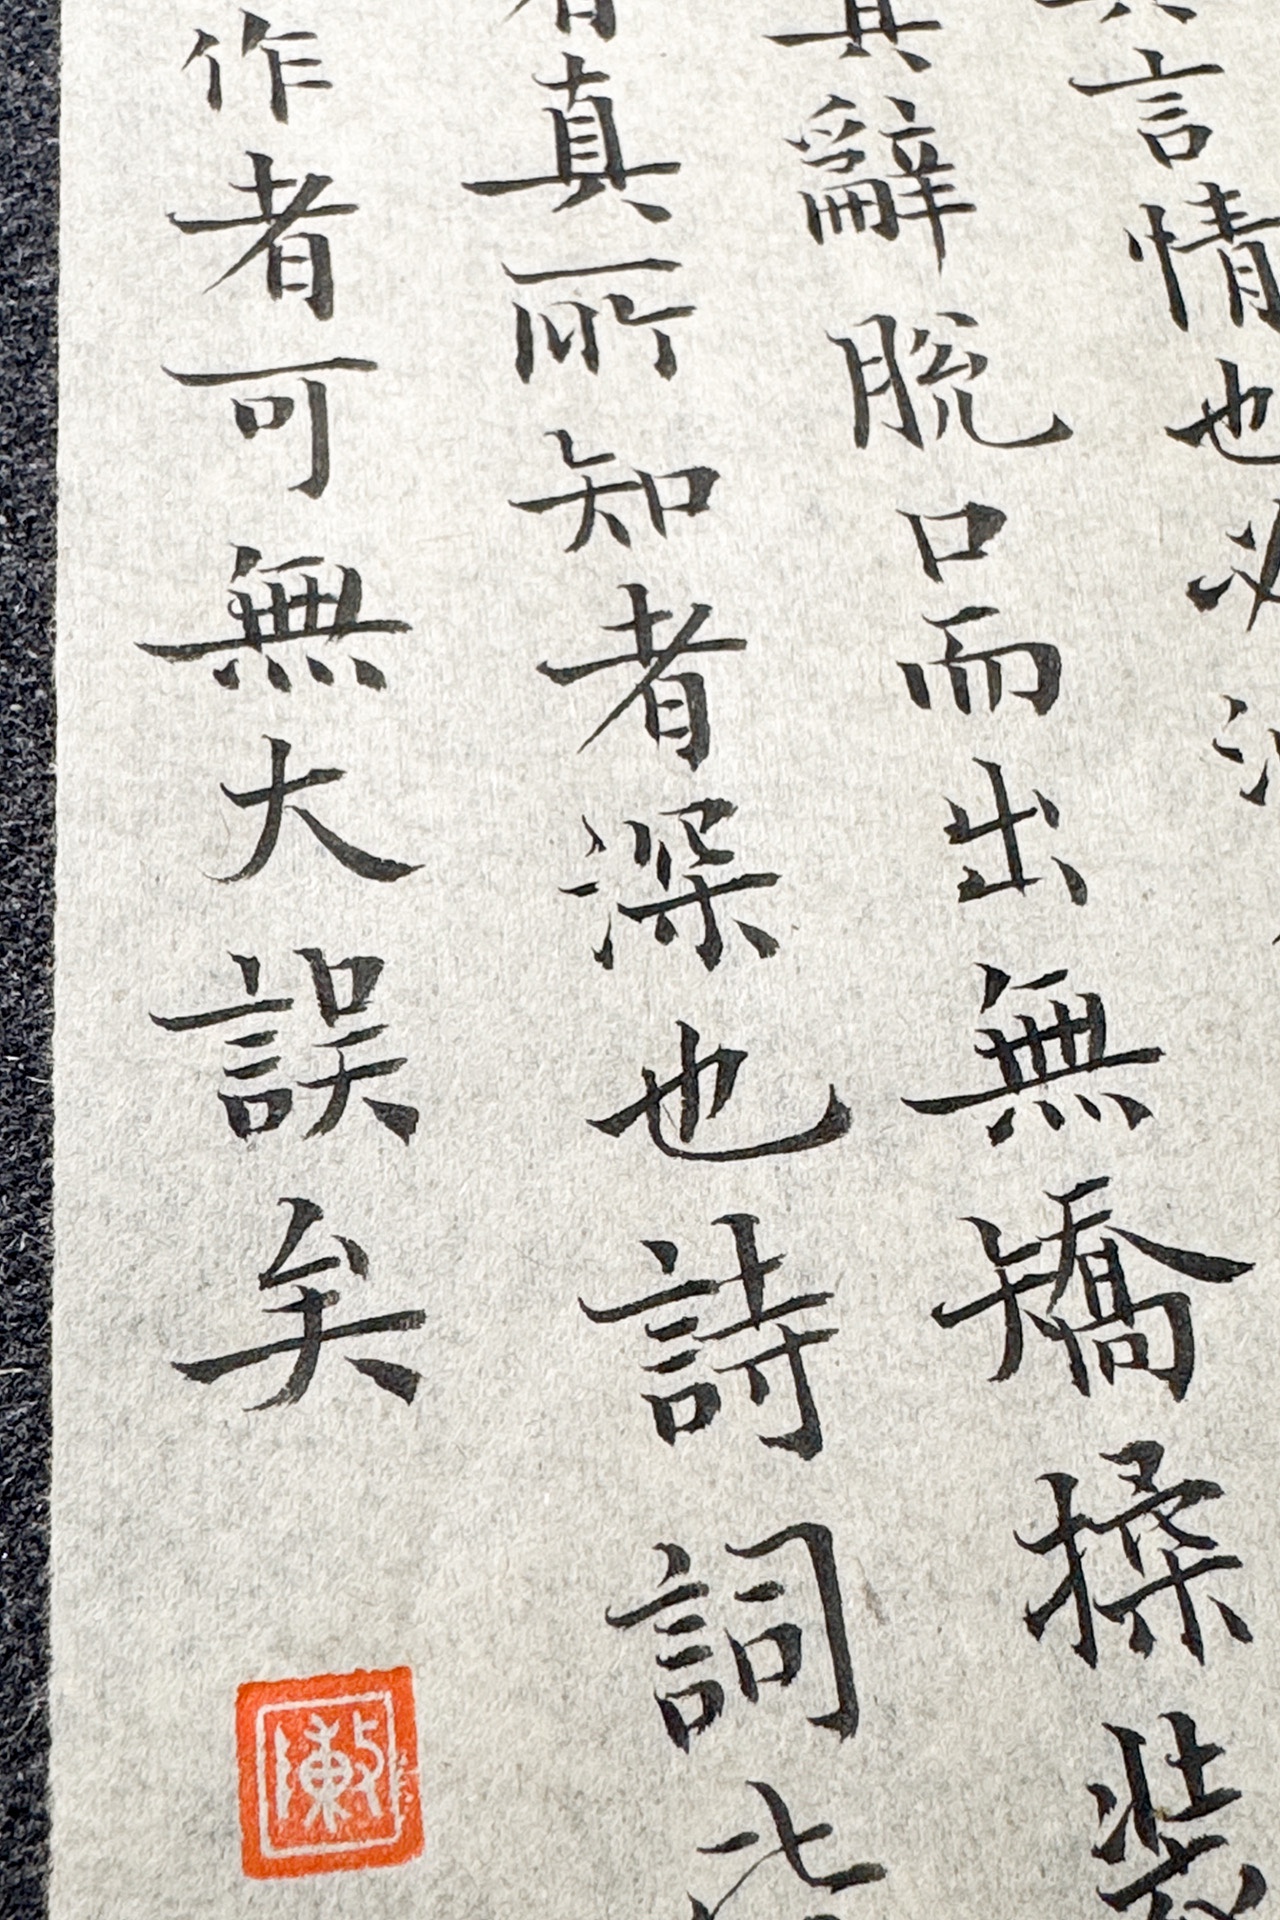 其言情也必
其辭脫口而出無矯揉裝
者真所知者深也詩詞皆
作者可無大誤矣